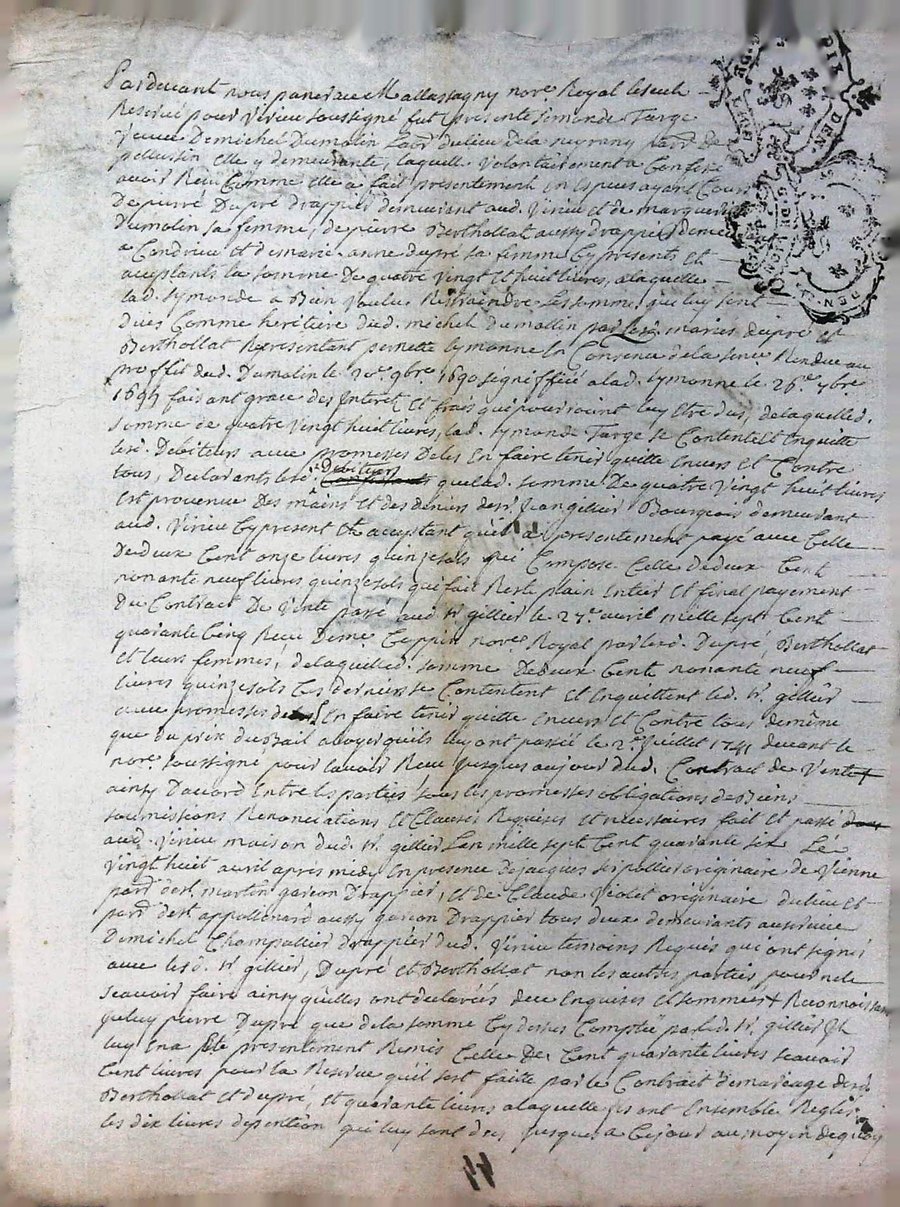 Pardevant nous pancrace Mallassagny nore. Royal le seul
Reservé pour Virieu soussigné fut presente simonde Targe
veuve De michel Dumolin Labr. du lieu de la parr. de
pellussin elle y demeurante, laquelle volontairement a Confessé
avoir Receu Comme elle a fait presentement en Especes ayant Cour
De pierre Dupré drappier demeurant aud. Virieu et de marguerite
Dumolin sa femme, de pierre Berthollat aussy drappier demeurant
a Condrieu et de marie anne dupré sa femme Cy presents et
acceptants la somme De quatre vingt et huit livres, a laquelle
lad. symonde a Bien Voulu Restraindre les sommes que luy sont
dües Comme heritiere dud. michel dumollin par lesd. maries dupré et
Berthollat Representant pernette symonne la Sentence Rendue au
proffit dud. Dumolin le 20e. 9bre. 1690 signiffiée a lad. symonne le 26e. 9bre.
faisant grace des Interet et frais qui pourroint luy etre dus, de laquelle d.
somme de quatre vingt huit livres, lad. symonde Targe se Contente et Enquitte
lesd. Debiteurs avec promesses De les En faire tenir quitte Envers et Contre
tous, Declarants lesd. Debiteurs que lad. somme De quatre vingt huit livres
est provenue Des mains et des deniers de sr. Jean gillier Bourgeois demeurant
aud. Virieu Cy present et acceptant qu'il a presentement payé avec Celle
De deux Cent onze livres quinze sols qui Compose Celle De deux Cent
nonante neuf livres quinze sols qui fait Reste plain Entier et final payement
Du Contract De Vente passé aud. sr. gillier le 27e. avril mille sept Cent
quarante Cinq Receu De me. Cappin nore. Royal par lesd. Dupré, Berthollat
et leurs femmes, de laquelle d. somme De deux Cent nonante neuf
livres quinze sols Ces derniers se Contentent et Enquittent led. sr. gillier
avec promesses de l'En faire tenir quitte Envers et Contre tous de même
que du prix du Bail a loyer qu'ils luy ont passé le 2e. Juillet 1741 devant le
nore. soussigné pour l'avoir Receu Jusques aujour dud. Contract de Vente
ainsy D'accord Entre les parties sous les promesses obligations de Biens
soumissions Renonciations et Clauses Requises et nécessaires fait et passé
aud. Virieu maison dud. sr. gillier L'an mille sept Cent quarante six Le
vingt huit avril après midy En presence De jacques originaire de Vienne
parr. de st. martin garçon Drappier, et de Claude Violet originaire du lieu et
parr. de st. appollinard aussy garçon Drappier tous deux demeurants au service
De michel Champallier drappier dud. Virieu temoins Requis qui ont signé
avec lesd. sr. gillier, Dupré et Berthollat non les autres parties, pour ne le
sçavoir faire ainsy qu'elles ont declarées de ce Enquises et sommées + Reconnoissant
pierre Dupré que de la somme Cy dessus Comptée par led. sr. gillier
luy En a été presentement Remis Celle De Cent quarante livres sçavoir
Cent livres pour la Reserve qu'il s'est faitte par le Contract de mariage desd.
Berthollat et dupré, et quarante livres a laquelle ils ont Ensemble Reglés
les dix livres de pention qui luy sont dües jusques a Ce jour au moyen de quoy